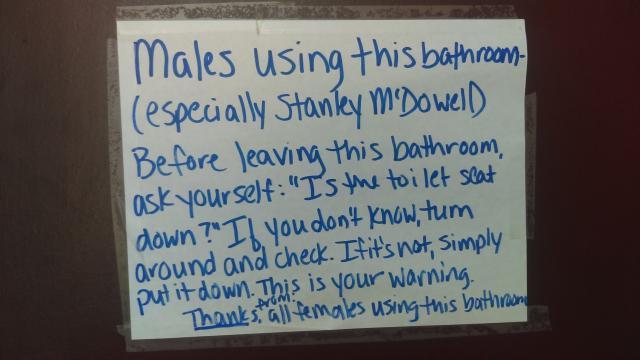 Males using this bathroom-
(especially Stanley McDowell)
Before leaving this bathroom,
ask yourself: "Is the toilet seat
down?" If you don't know, turn
around and check. If it's not, simply
put it down. This is your warning.
Thanks, from: all females using this bathroom